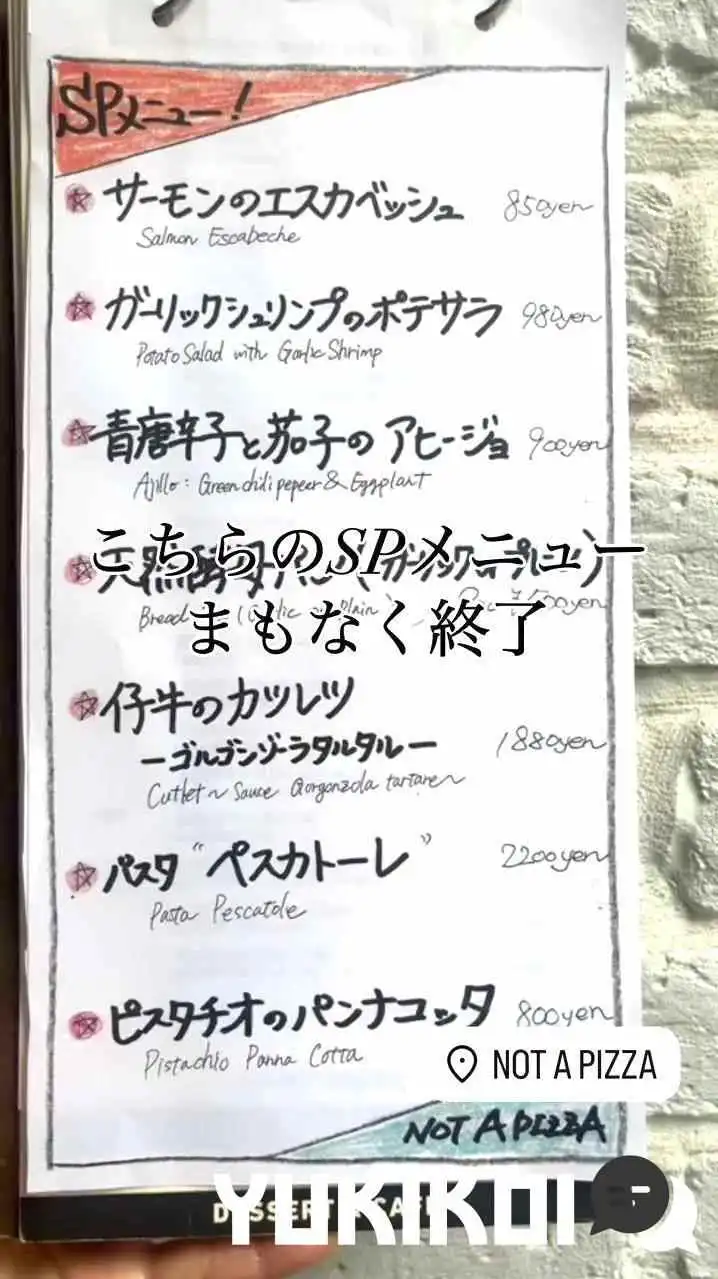 SPメニュー!
サーモンのエスカベッシュ 850yen
Salmon Escabeche
ガーリックシュリンプのポテサラ 980yen
Potato Salad with Garlic Shrimp
青唐辛子と茄子のアヒージョ 900yen
Ajillo: Green chili pepeer & Eggplant
こちらのSPメニュー
Bread
まもなく終了
仔牛のカツレツ
ーゴルゴンゾーラタルタルー 1880yen
Cutlet ~ Sauce Gorgonzola tartare~
パスタ “ペスカトーレ” 2200yen
Pasta Pescatole
ピスタチオのパンナコッタ 800yen
Pistachio Panna Cotta
NOT A PIZZA
NOT A PIZZA
YUKIKOI